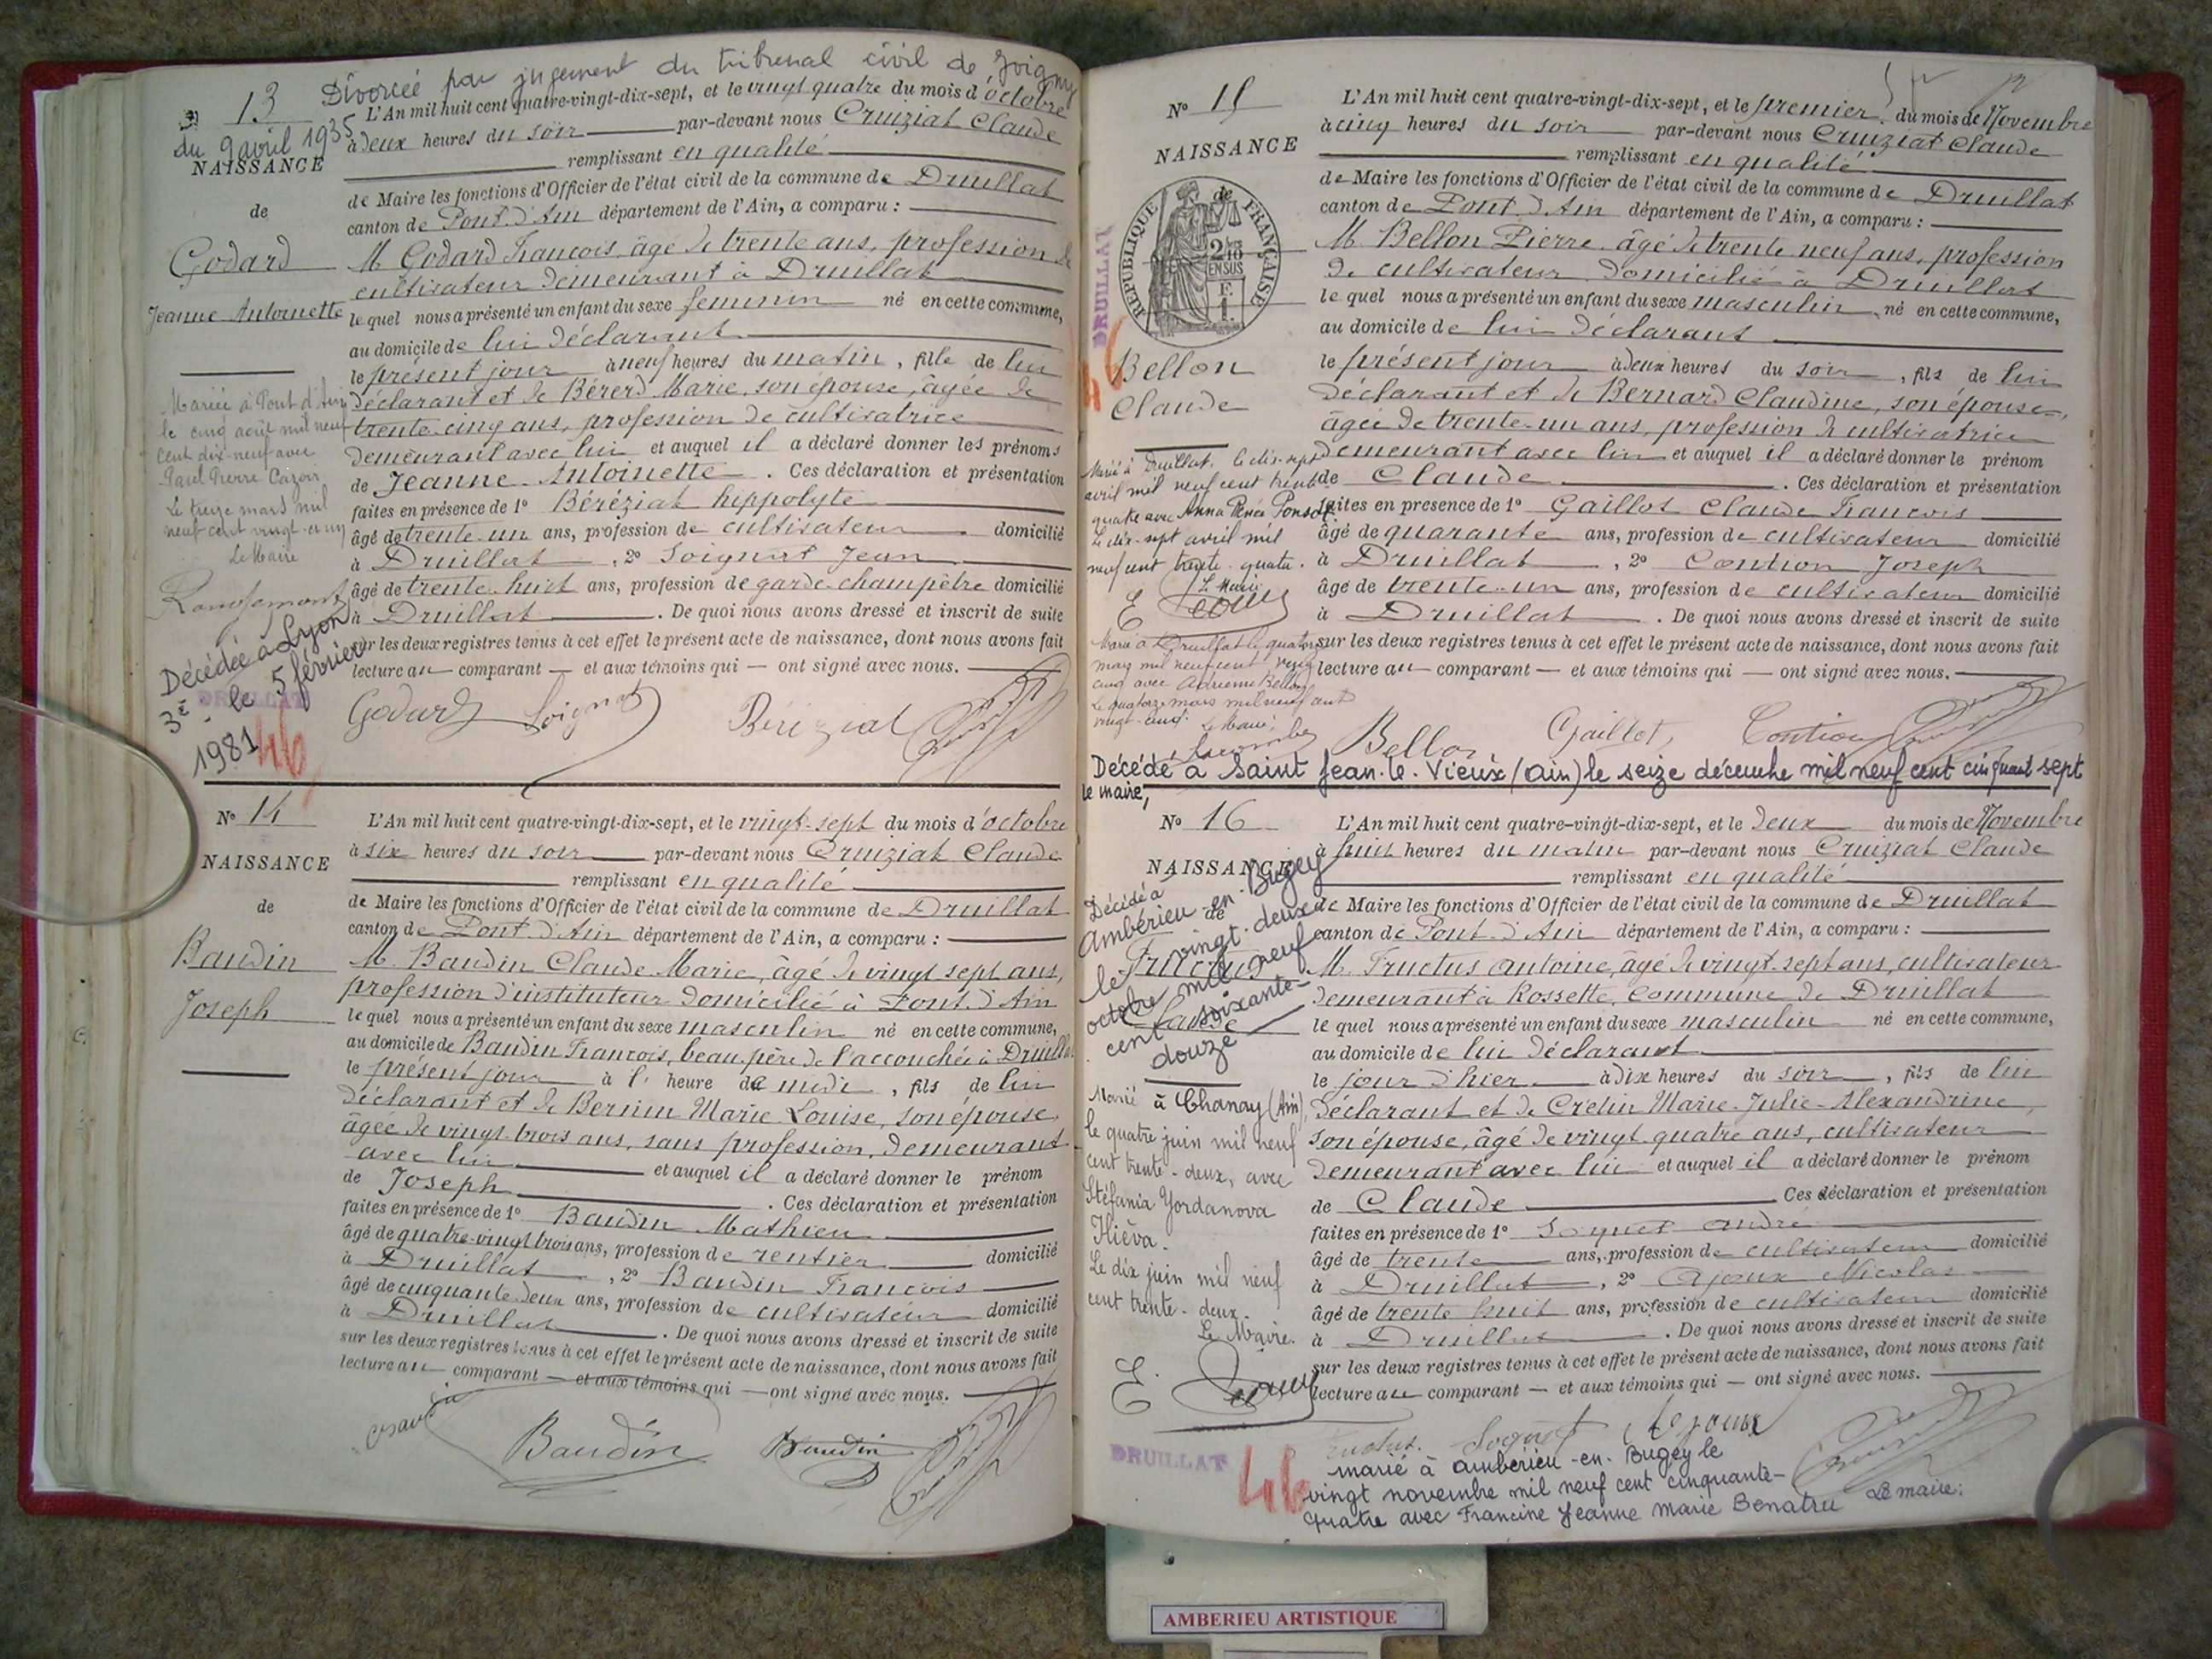 Divorcée par jugement du tribunal civil de Joigny
du 9 avril 1935
13
NAISSANCE
de
Godard
Jeanne Antoinette
L'An mil huit cent quatre-vingt-dix-sept, et le vingt quatre du mois d'octobre
à deux heures du soir par-devant nous Cruiziat Claude
remplissant en qualité
de Maire les fonctions d'Officier de l'état civil de la commune de Druillat
canton de Pont d'Ain département de l'Ain, a comparu :
M. Godard François, âgé de trente ans, profession de
cultivateur demeurant à Druillat
le quel nous a présenté un enfant du sexe feminin né en cette commune,
au domicile de lui déclarant
le présent jour à neuf heures du matin, fille de lui
déclarant et de Bérerd Marie, son épouse, âgée de
trente-cinq ans, profession de cultivatrice
demeurant avec lui et auquel il a déclaré donner les prénoms
de Jeanne Antoinette. Ces déclaration et présentation
faites en présence de 1° Béréziat hippolyte
âgé de trente-un ans, profession de cultivateur domicilié
à Druillat, 2° Soignat Jean
âgé de trente-huit ans, profession de garde-champêtre domicilié
à Druillat. De quoi nous avons dressé et inscrit de suite
sur les deux registres tenus à cet effet le présent acte de naissance, dont nous avons fait
lecture au comparant — et aux témoins qui — ont signé avec nous.
Godard Soignat Béréziat
Mariée à Pont d'Ain
le cinq août mil neuf
cent dix-neuf avec
Paul Pierre
Le treize mars mil
neuf cent vingt-et-un
Le Maire
Décédée à Lyon
3e - le 5 février
1981
DRUILLAT
46
N° 14
NAISSANCE
de
Baudin
Joseph
L'An mil huit cent quatre-vingt-dix-sept, et le vingt-sept du mois d'octobre
à six heures du soir par-devant nous Cruiziat Claude
remplissant en qualité
de Maire les fonctions d'Officier de l'état civil de la commune de Druillat
canton de Pont d'Ain département de l'Ain, a comparu :
M. Baudin Claude Marie, âgé de vingt sept ans,
profession d'instituteur domicilié à Pont d'Ain
le quel nous a présenté un enfant du sexe masculin né en cette commune,
au domicile de Baudin François, beau-père de l'accouchée à Druillat
le présent jour à l' heure de midi, fils de lui
déclarant et de Bernin Marie Louise, son épouse
âgée de vingt trois ans, sans profession, demeurant
avec lui et auquel il a déclaré donner le prénom
de Joseph. Ces déclaration et présentation
faites en présence de 1° Baudin Mathieu
âgé de quatre-vingt trois ans, profession de rentier domicilié
à Druillat, 2° Baudin François
âgé de cinquante deux ans, profession de cultivateur domicilié
à Druillat. De quoi nous avons dressé et inscrit de suite
sur les deux registres tenus à cet effet le présent acte de naissance, dont nous avons fait
lecture au comparant — et aux témoins qui — ont signé avec nous.
Baudin Baudin
N° 15
NAISSANCE
de
RÉPUBLIQUE FRANÇAISE
2/10 EN SUS
F. 1.
DRUILLAT
46
Bellon
Claude
L'An mil huit cent quatre-vingt-dix-sept, et le premier du mois de Novembre
à cinq heures du soir par-devant nous Cruiziat Claude
remplissant en qualité
de Maire les fonctions d'Officier de l'état civil de la commune de Druillat
canton de Pont d'Ain département de l'Ain, a comparu :
M. Bellon Pierre, âgé de trente neuf ans, profession
de cultivateur domicilié à Druillat
le quel nous a présenté un enfant du sexe masculin né en cette commune,
au domicile de lui déclarant
le présent jour à deux heures du soir, fils de lui
déclarant et de Bernard Claudine, son épouse,
âgée de trente-un ans, profession de cultivatrice
demeurant avec lui et auquel il a déclaré donner le prénom
de Claude. Ces déclaration et présentation
faites en présence de 1° Gaillot Claude François
âgé de quarante ans, profession de cultivateur domicilié
à Druillat, 2° Contion Joseph
âgé de trente-un ans, profession de cultivateur domicilié
à Druillat. De quoi nous avons dressé et inscrit de suite
sur les deux registres tenus à cet effet le présent acte de naissance, dont nous avons fait
lecture au — comparant — et aux témoins qui — ont signé avec nous.
Bellon Gaillot Contion
Marié à Druillat, le dix-sept
avril mil neuf cent trente
quatre avec Anna Ponsot
Le dix-sept avril mil
neuf cent trente-quatre.
Le Maire
Marié à Druillat le quatorze
mars mil neuf cent vingt
cinq avec Adrienne Bellon
Le quatorze mars mil neuf cent
vingt-cinq. Le Maire:
Décédé à Saint Jean-le-Vieux (Ain) le seize décembre mil neuf cent cinquante sept
le maire,
N° 16
NAISSANCE
de
Fructus
Claude
L'An mil huit cent quatre-vingt-dix-sept, et le deux du mois de Novembre
à huit heures du matin par-devant nous Cruiziat Claude
remplissant en qualité
de Maire les fonctions d'Officier de l'état civil de la commune de Druillat
canton de Pont d'Ain département de l'Ain, a comparu :
M. Fructus antoine, âgé de vingt-sept ans, cultivateur
demeurant à Rossette, commune de Druillat
le quel nous a présenté un enfant du sexe masculin né en cette commune,
au domicile de lui déclarant
le jour d'hier à dix heures du soir, fils de lui
déclarant et de Cretin Marie-Julie-Alexandrine,
son épouse, âgé de vingt-quatre ans, cultivateur
demeurant avec lui et auquel il a déclaré donner le prénom
de Claude. Ces déclaration et présentation
faites en présence de 1° Soquet andré
âgé de trente ans, profession de cultivateur domicilié
à Druillat, 2° Ajoux Nicolas
âgé de trente huit ans, profession de cultivateur domicilié
à Druillat. De quoi nous avons dressé et inscrit de suite
sur les deux registres tenus à cet effet le présent acte de naissance, dont nous avons fait
lecture au — comparant — et aux témoins qui — ont signé avec nous.
Fructus. Soquet Ajoux
Décédé à
Ambérieu-en-Bugey
le vingt-deux
octobre mil neuf
cent soixante-
douze
Marié à Chanay (Ain),
le quatre juin mil neuf
cent trente-deux, avec
Stéfania Yordanova
Iliéva.
Le dix juin mil neuf
cent trente-deux.
Le Maire.
DRUILLAT
46
marié à ambérieu-en-Bugey le
vingt novembre mil neuf cent cinquante-
quatre avec Francine Jeanne Marie Benatru Le maire:
AMBERIEU ARTISTIQUE